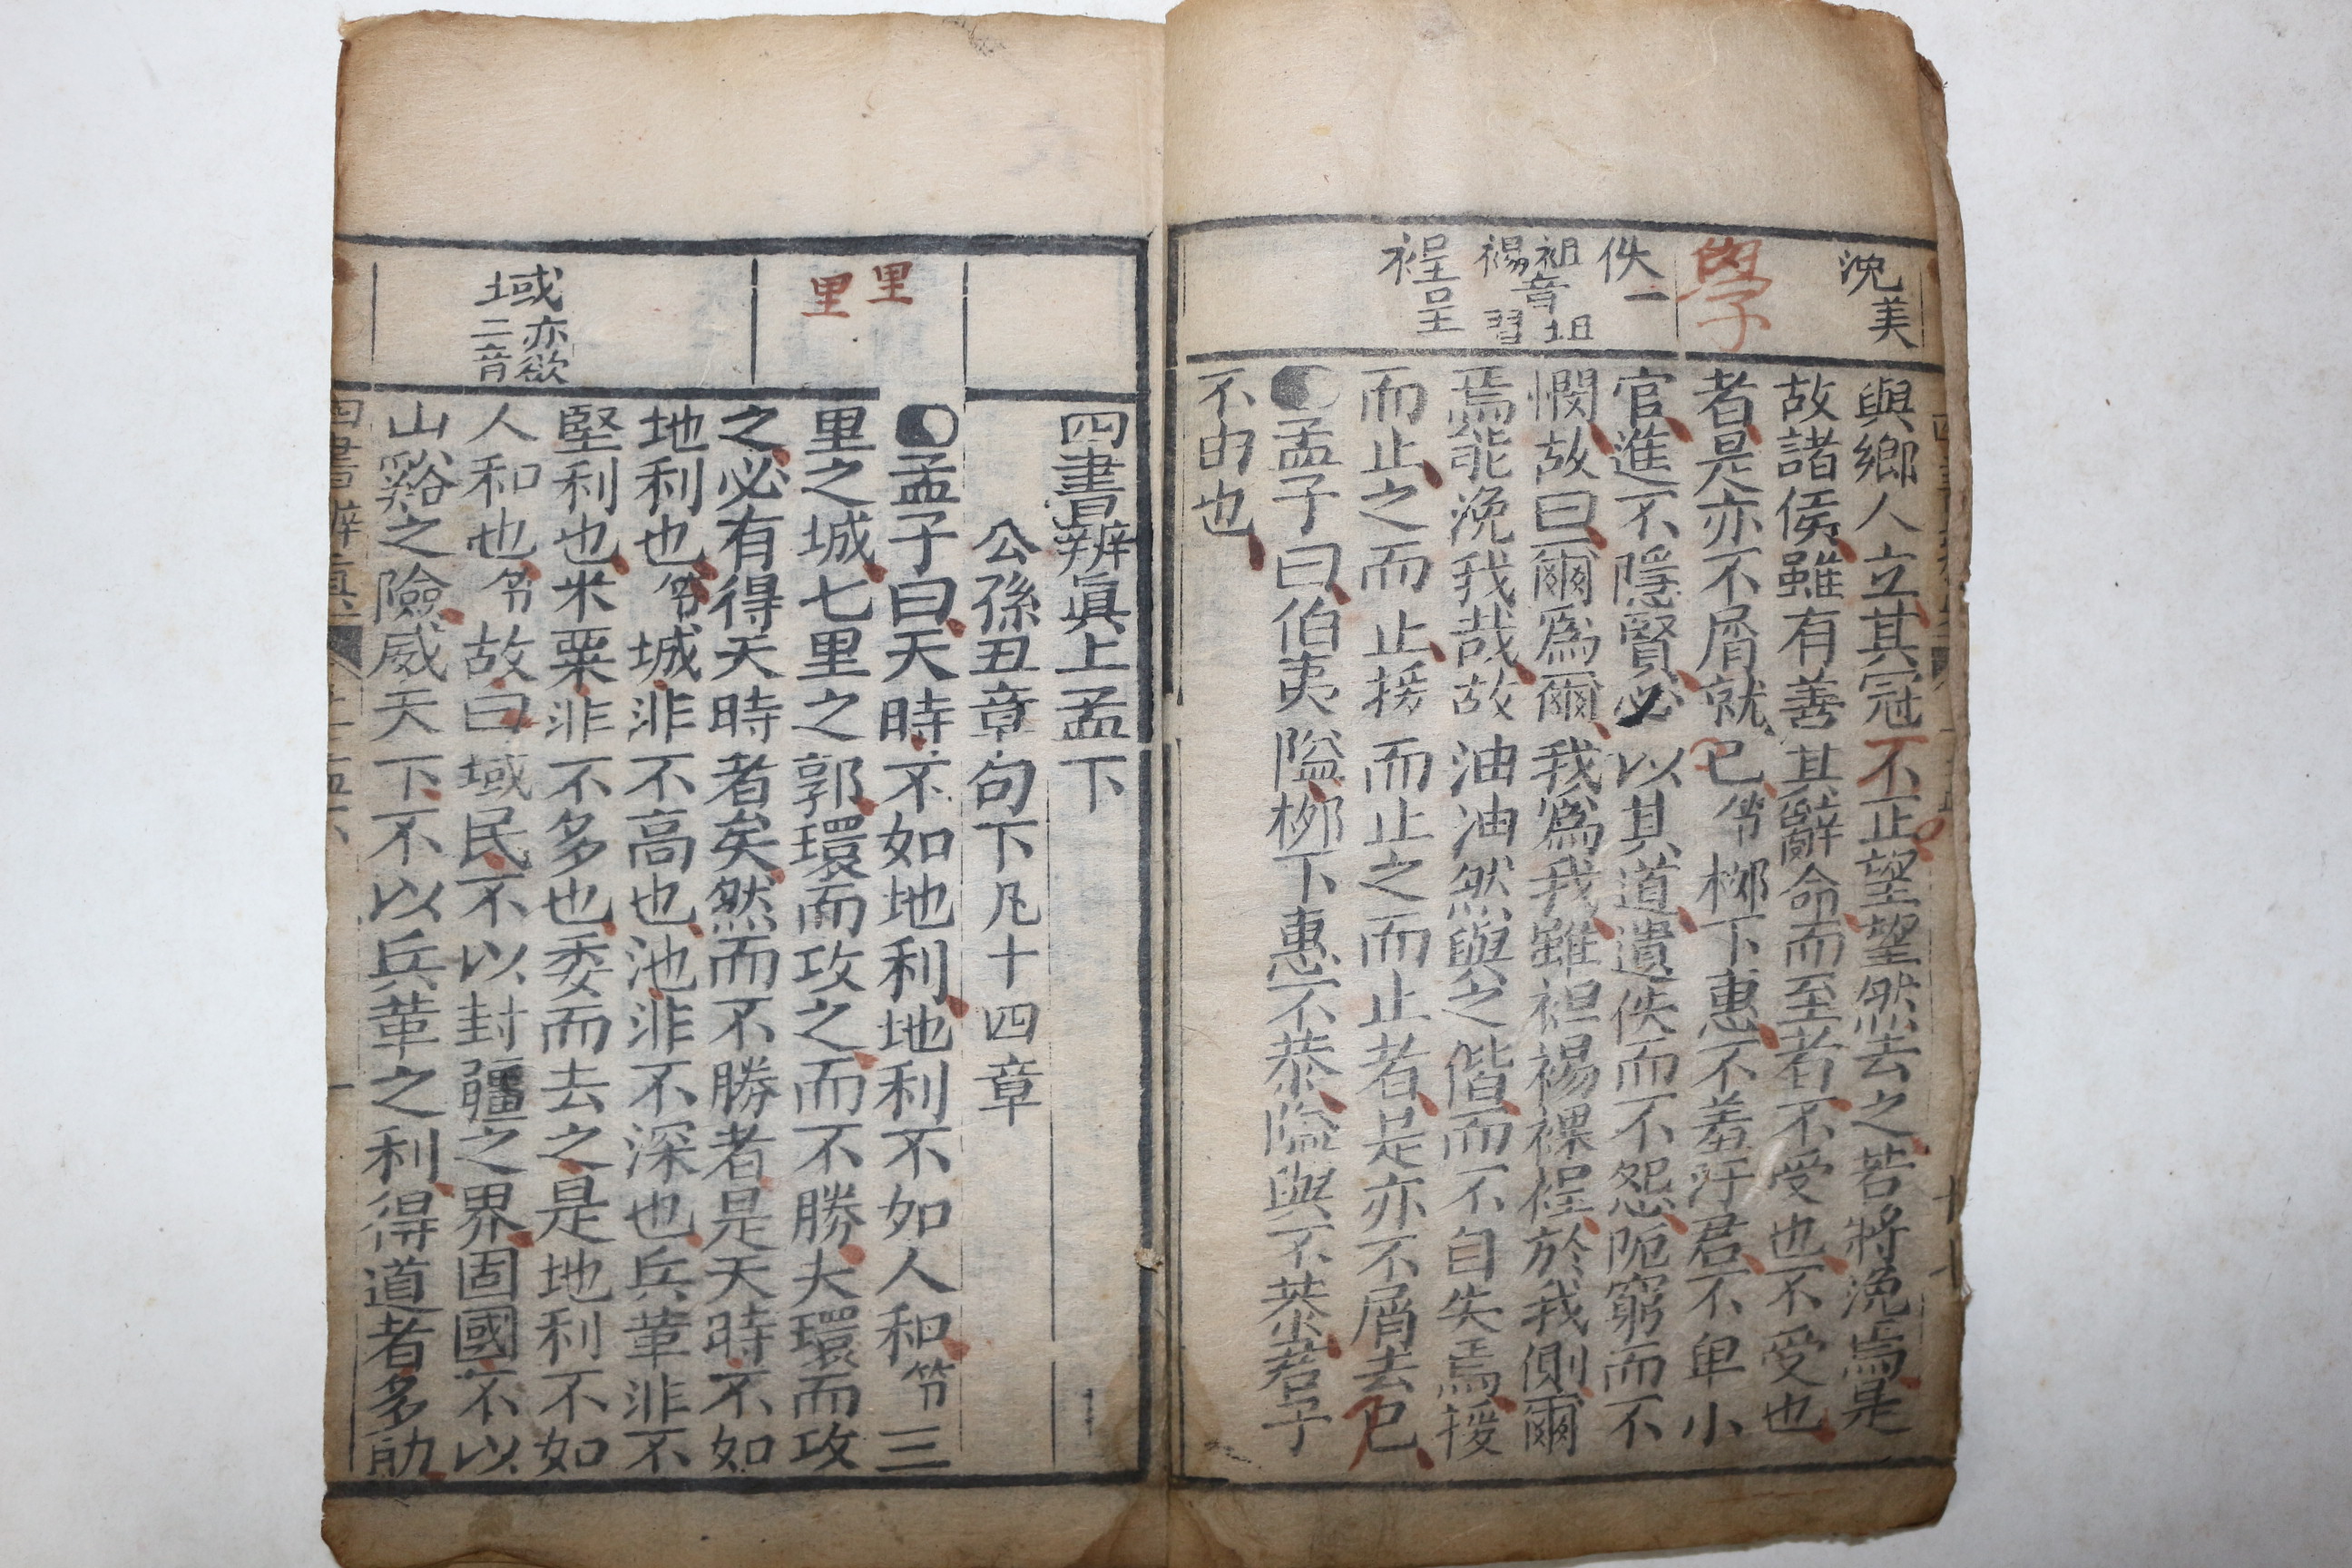 浼美
學
佚一
袒音坦
裼習
裎呈
與鄉人立其冠不正望望然去之若將浼焉是
故諸侯雖有善其辭命而至者不受也不受也
者是亦不屑就已柳下惠不羞汙君不卑小
官進不隱賢必以其道遺佚而不怨阨窮而不
憫故曰爾爲爾我爲我雖袒裼裸裎於我側爾
焉能浼我哉故油油然與之偕而不自失焉援
而止之而止援而止之而止者是亦不屑去已
孟子曰伯夷隘柳下惠不恭隘與不恭君子
不由也
里
里
域亦欲
二音
四書辨眞上孟下
公孫丑章句下凡十四章
孟子曰天時不如地利地利不如人和三
里之城七里之郭環而攻之而不勝夫環而攻
之必有得天時者矣然而不勝者是天時不如
地利也城非不高也池非不深也兵革非不
堅利也米粟非不多也委而去之是地利不如
人和也故曰域民不以封疆之界固國不以
山谿之險威天下不以兵革之利得道者多助
四書辨眞